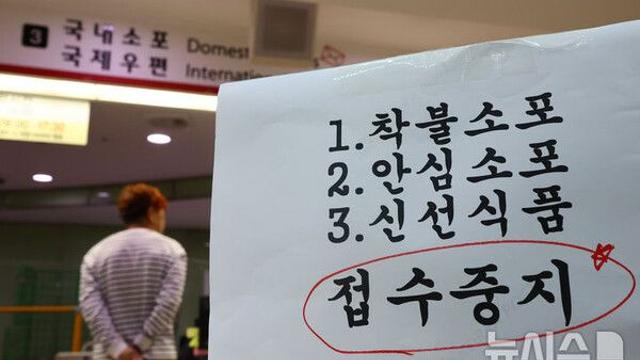 3 국내소포 Domest
국제우편 Internation
1. 착불소포
2. 안심소포
3. 신선식품
접수중지
뉴시스